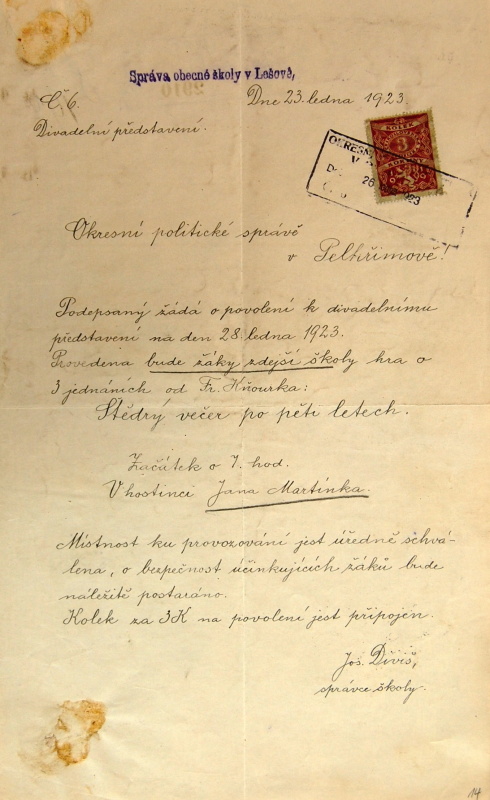 Správa obecné školy v Lešově,
Č. 6.
Dne 23. ledna 1923.
Divadelní představení.
KOLEK
3
OKRESNÍ
V
26
923
Okresní politické správě
v Pelhřimově!
Podepsaný žádá o povolení k divadelnímu
představení na den 28. ledna 1923.
Provedena bude žáky zdejší školy hra o
3 jednáních od Fr. Kňourka:
Štědrý večer po pěti letech.
Začátek o 7. hod.
V hostinci Jana Martínka.
Místnost ku provozování jest úředně schvá-
lena, o bezpečnost účinkujících žáků bude
náležitě postaráno.
Kolek za 3K na povolení jest připojen.
Jos. Diviš,
správce školy.
14